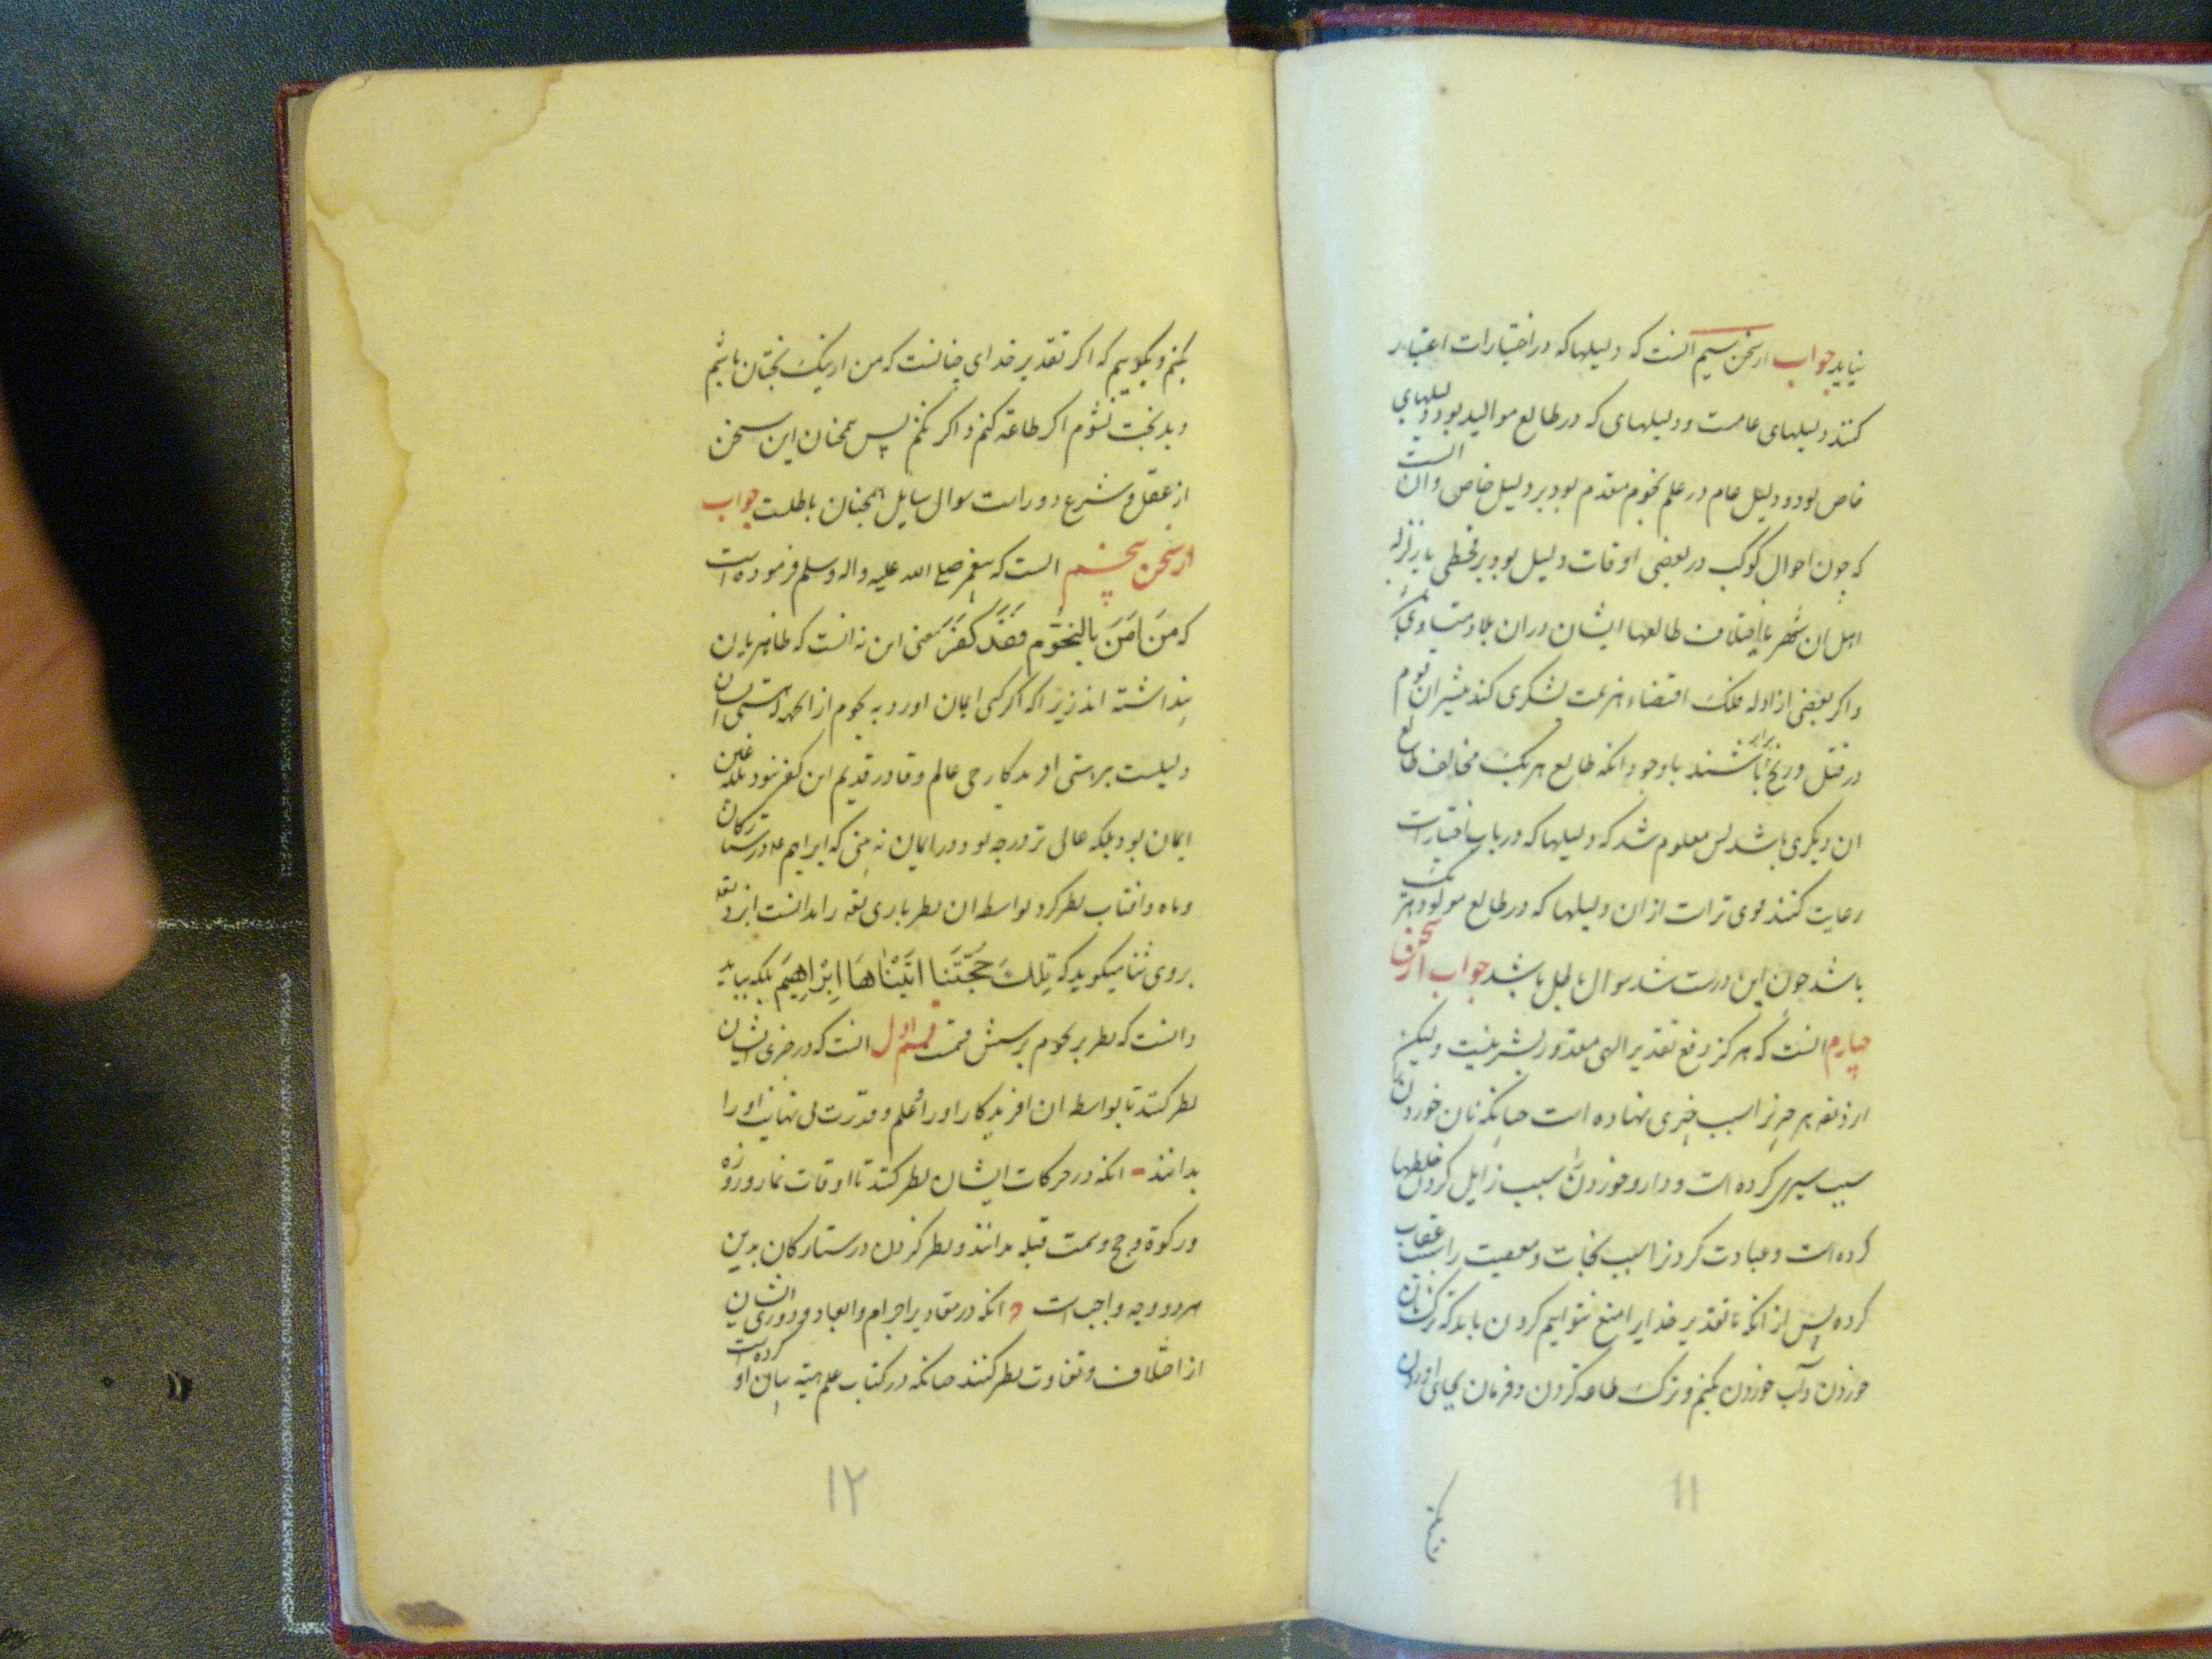 نیاید جواب از سخن سیم انست که دلیلها که در اختیارات اعتبار
کنند دلیلهای عامست و دلیلهای که در طالع موالید بود دلیلهای
خاص بود و دلیل عام در علم نجوم مقدم بود بر دلیل خاص و ان انست
که چون احوال کوکب در بعضی اوقات دلیل بود بر قحطی یا زلزله
اهل ان شهر با اختلاف طالعها ایشان دران بلا متساوی
و اکر بعضی از ادله فلک اقتضاء هزیمت لشکری کند بیشتر ان قوم
در قتل و رنج باشند باوجود انکه طالع هر یک مخالف طالع
ان دیکری باشد پس معلوم شد که دلیلها که در باب اختیارات
رعایت کنند قوی ترات از ان دلیلها که در طالع مولود هر یک
باشد چون این درست شد سوال باطل باشد جواب از سخن
چهارم انست که هرکز دفع تقدیر الهی مقدور بشر نیست ولیکن
ایزد تعه هر چیز را سبب چیزی نهاده است چنانکه نان خوردن
سبب سیری کرده است و دارو خوردن سبب زایل کردن خلطها
کرده است و عبادت کردن را سبب نجات و معصیت را سبب عقاب
کرده پس از انکه ما تقدیر خدایرا منع نتوانیم کردن باید که ترک نان
خوردن و آب خوردن بکنم و ترک طاعه کردن و فرمان بجای اوردن
بکنم
۱۱
بکنم و بکوییم که اکر تقدیر خدای چنانست که من از نیک بختان باشم
و بدبخت نشوم اکر طاعة کنم و اکر نکنم پس همچنان این سخن
از عقل و شرع دور است سوال سایل همچنان باطلست جواب
از سخن پنجم انست که پیغمبر صلی الله علیه واله وسلم فرموده است
که مَنَ اٰمَنَ بالنجُّوْم فَقَدْ کَفَرَ معنی این نه انست که ظاهریان
پنداشته اند زیرا که اکر کسی ایمان اورد به نجوم از انجهه که هستی ایشان
دلیلست براستی افریدکار حی عالم و قادر قدیم این کفر نبود بلکه عین
ایمان بود بلکه عالی تر درجه بود در ایمان نه بینی که ابراهیم ع در ستارکان
و ماه و افتاب نظر کرد بواسطه ان نظر باری تعه را بدانست ایزد تعه
بروی ثنا میکوید که تِلْكَ حُجَّتُنَا اتَیْنٰاهَا اِبْرَاهِیْمَ بلکه بباید
دانست که نظر بر نجوم برشش قسمت قسم اول انست که در حرّی ایشان
نظر کنند تا بواسطه ان افریدکار او را و علم و قدرت بی نهایت او را
بدانند - انکه در حرکات ایشان نظر کنند تا اوقات نماز و روزه
و زکوة و حج و سمت قبله بدانند و نظر کردن در ستارکان بدین
هر دو وجه واجبست انکه در مقادیر اجرام و ابعاد و دوری ایشان
از اختلاف و تفاوت نظر کنند چنانکه در کتاب علم هیئة بیان او کرده است
۱۲